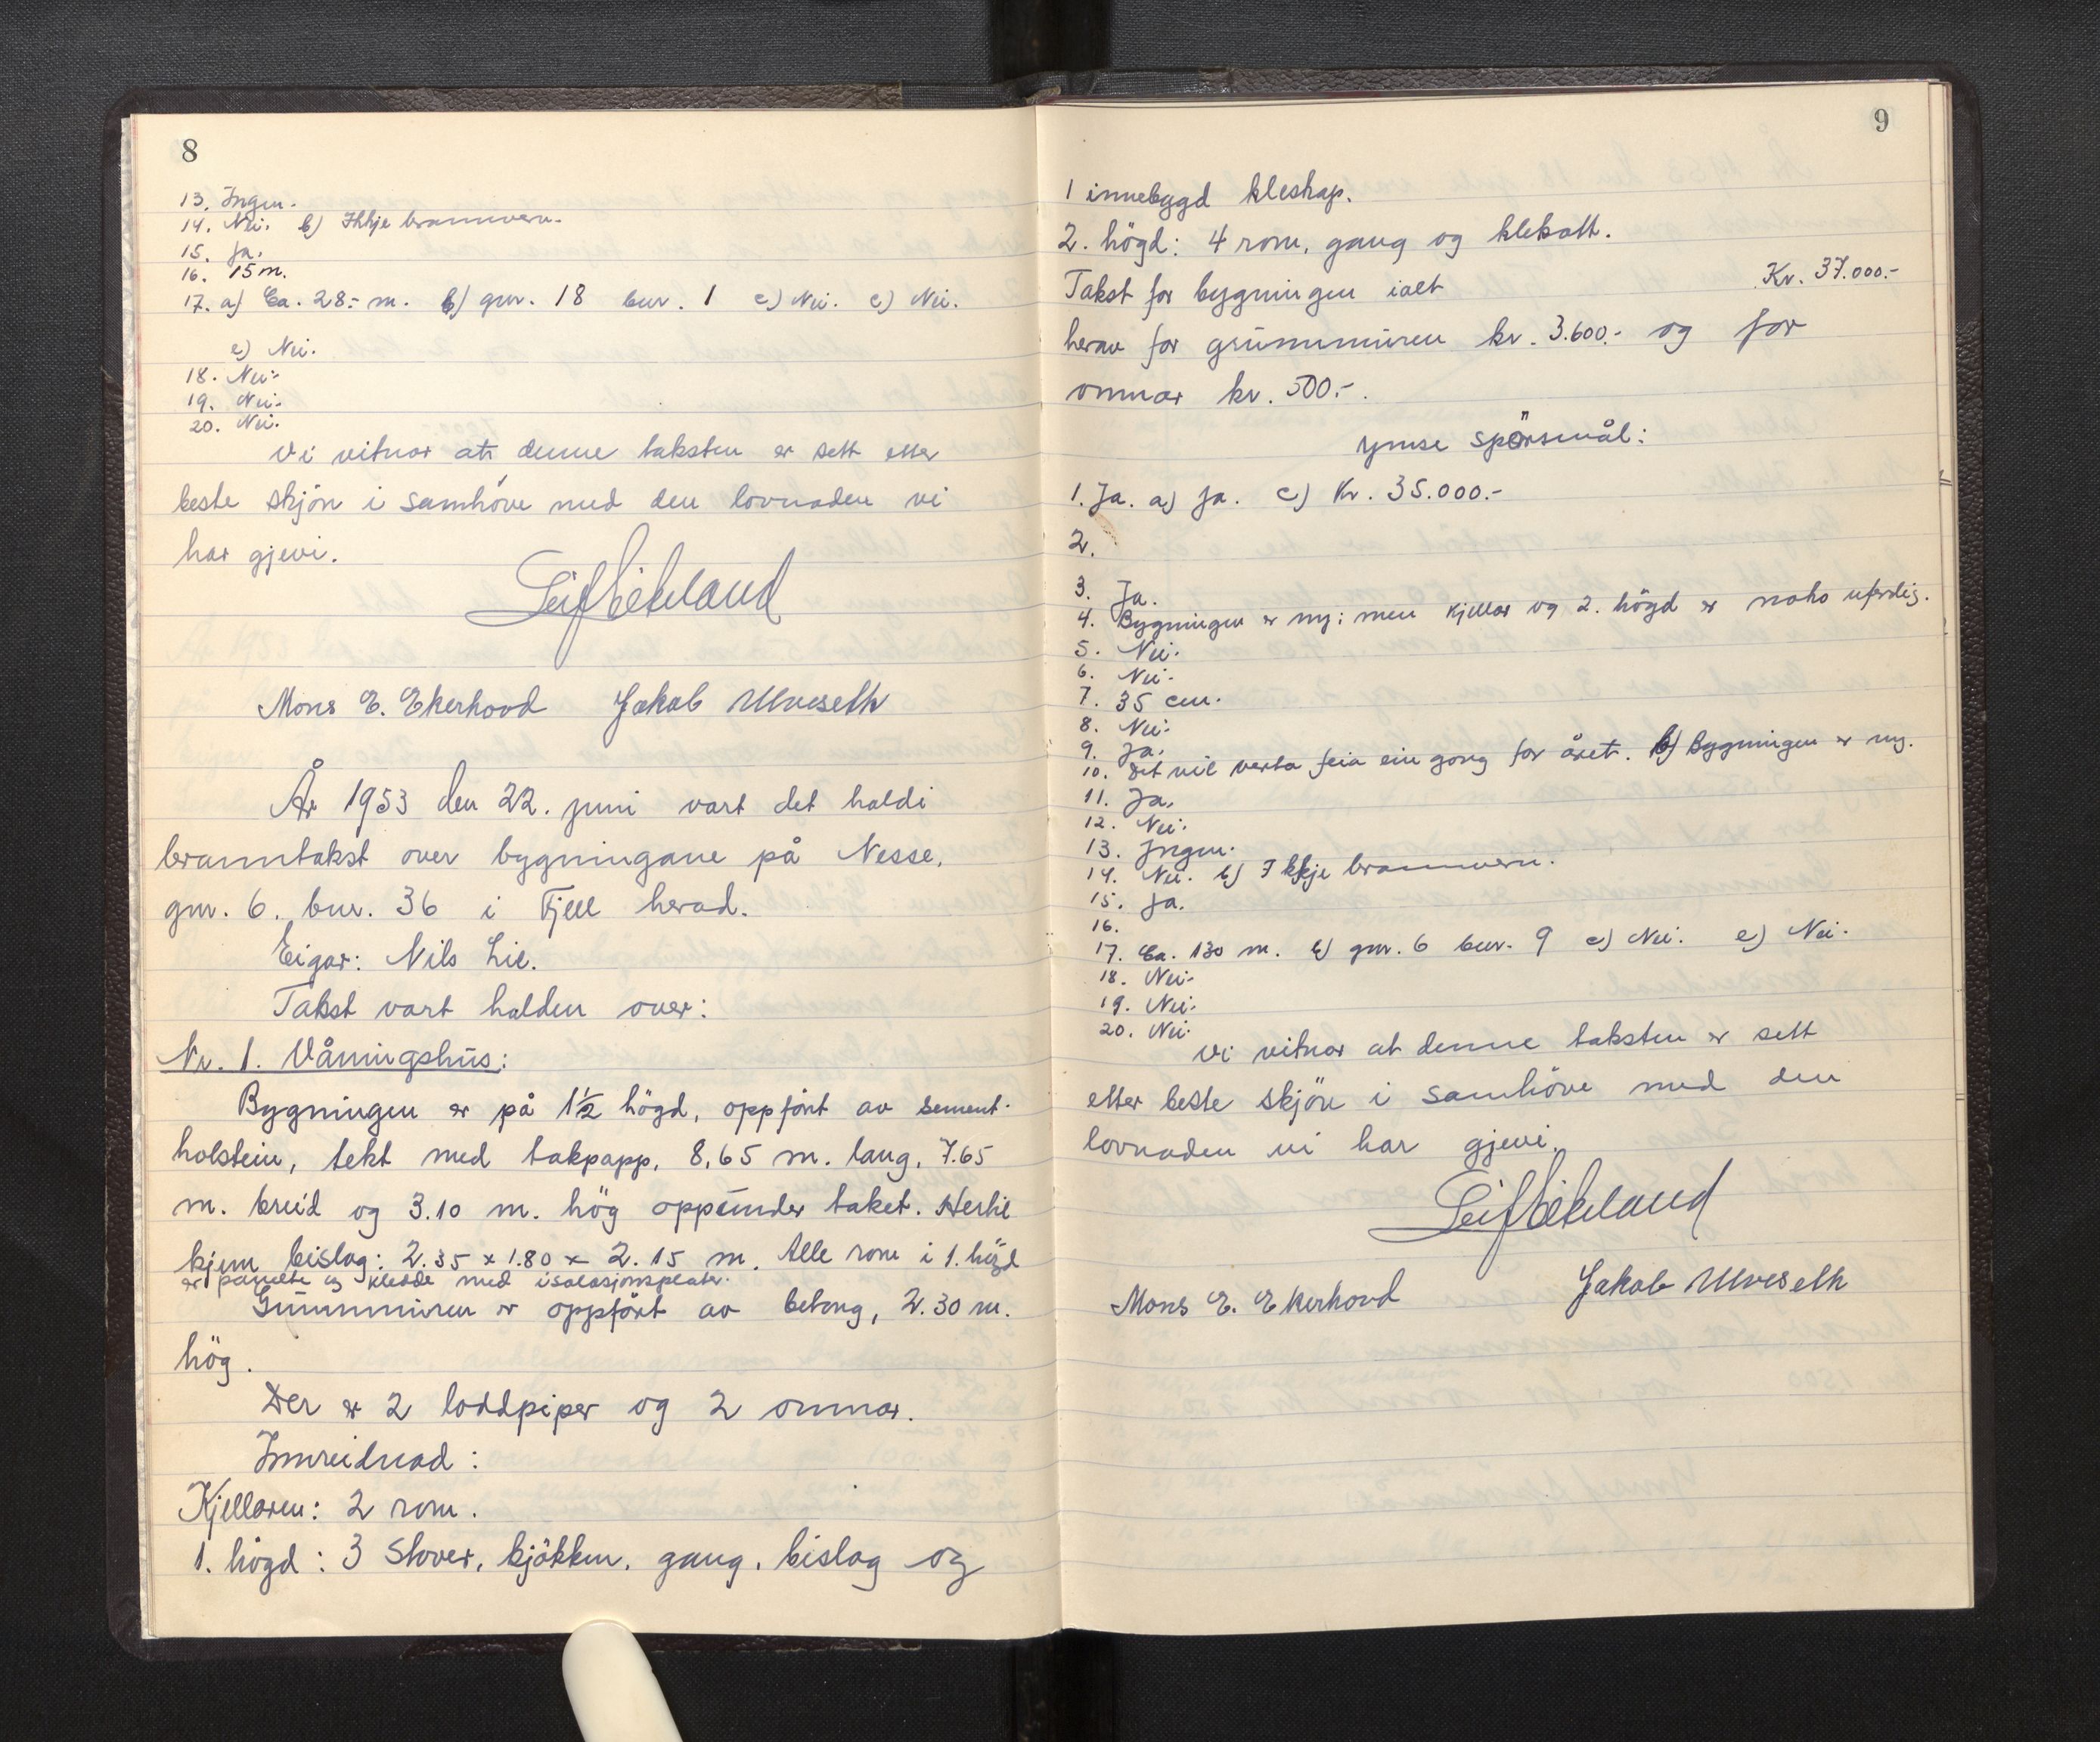 8
13. Ingen.
14. Nei. b) Ikkje brannvern.
15. Ja.
16. 15 m.
17. a) Ca. 28.- m. b) gnr. 18 bnr. 1 c) Nei. e) Nei.
e) Nei.
18. Nei.
19. Nei.
20. Nei.
Vi vitnar at denne taksten er sett etter
beste skjön i samhöve med den lovnaden vi
har gjevi.
Leif Eikeland
Mons E. Ekerhovd Jakob Ulveseth
År 1953 den 22. juni vart det haldi
branntakst over bygningane på Nesse,
gnr. 6. bnr. 36 i Fjell herad.
Eigar: Nils Lie.
Takst vart halden over:
Nr. 1. Våningshus:
Bygningen er på 1½ högd, oppfört av sement-
holstein, tekt med takpapp, 8,65 m. lang, 7.65
m. breid og 3.10 m. hög oppunder taket. Hertil
kjem bislag: 2.35 x 1.80 x 2.15 m. Alle rom i 1. högd
er panelte og kledde med isolasjonsplater.
Grunnmuren er oppfört av betong, 2.30 m.
hög.
Der er 2 loddpiper og 2 omnar.
Innreidnad:
Kjellaren: 2 rom.
1. högd: 3 stover, kjökken, gang, bislag og
9
1 innebygd kleskap.
2. högd: 4 rom, gang og klekott.
Takst for bygningen ialt Kr. 37.000.-
herav for grunnmuren kr. 3.600.- og for
omnar kr. 500.-.
Ymse spörsmål:
1. Ja. a) Ja. c) Kr. 35.000.-
2.
3. Ja.
4. Bygningen er ny; men kjellar og 2. högd er noko uferdig.
5. Nei.
6. Nei.
7. 35 cm.
8. Nei.
9. Ja.
10. Det vil verta feia ein gong for året. b) Bygningen er ny.
11. Ja.
12. Nei.
13. Ingen.
14. Nei. b) Ikkje brannvern.
15. Ja.
16.
17. Ca. 130 m. b) gnr. 6 bnr. 9 c) Nei. e) Nei.
18. Nei.
19. Nei.
20. Nei.
Vi vitnar at denne taksten er sett
etter beste skjön i samhöve med den
lovnaden vi har gjevi.
Leif Eikeland
Mons E. Ekerhovd Jakob Ulveseth